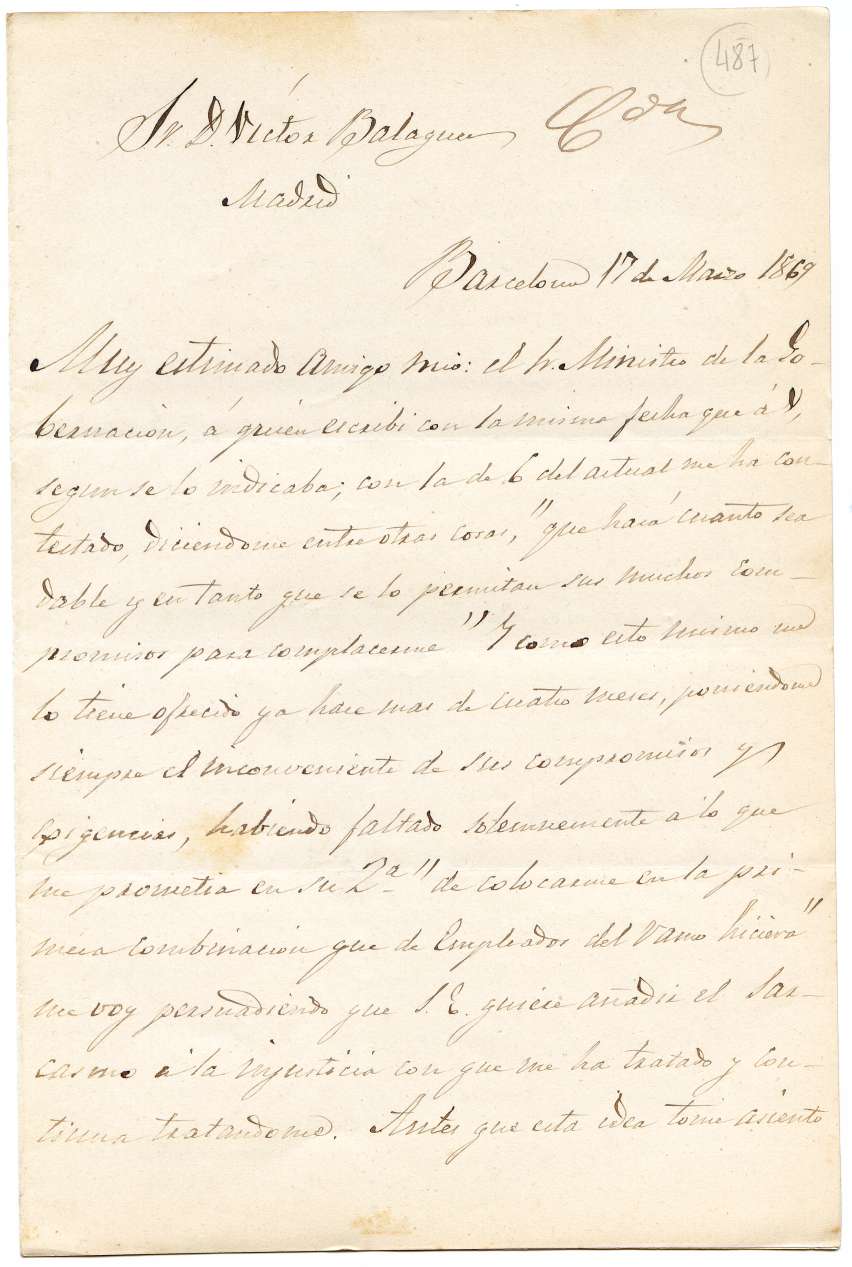 487
Sr. D. Víctor Balaguer
Madrid
Barcelona 17 de Marzo 1869
Muy estimado amigo mio: el Sr. Ministro de la Go-
bernacion, á quien escribí con la misma fecha que á V,
segun se lo indicaba; con la de 6 del actual me ha con-
testado, diciendome entre otras cosas, "que hará cuanto sea
dable y en tanto que se lo permitan sus muchos com-
promisos para complacerme" Y como esto mismo me
lo tiene ofrecido ya hace mas de cuatro meses, poniendome
siempre el inconveniente de sus compromisos y
exigencias, habiendo faltado solemnemente a lo que
me prometia en su 2ª "de colocarme en la pri-
mera combinacion que de Empleados del Ramo hiciera"
me voy persuadiendo que S. E. quiere añadir el sar-
casmo a la injusticia con que me ha tratado y con-
tinua tratandome. Antes que esta idea tome asiento